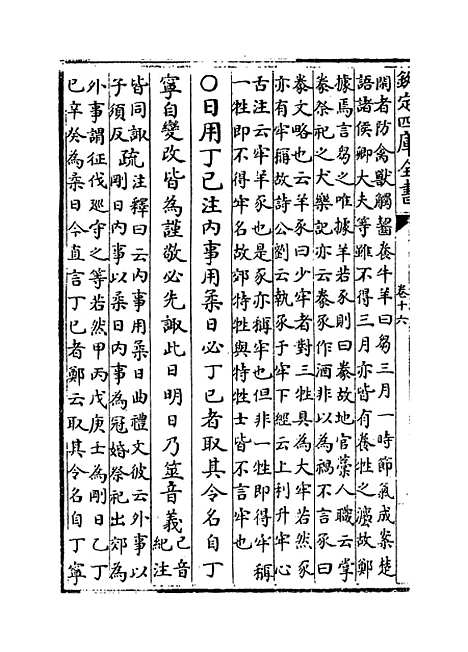 欽定四庫全書 卷十六
閑者防禽獸觸齧養牛羊曰芻三月一時節氣成案楚
語諸侯卿大夫等雖不得三月亦皆有養牲之灋故鄭
據焉言芻之唯據羊若豕則曰豢故地官槀人職云掌
豢祭祀之犬樂記亦云豢豕作酒非以為禍不言豕曰
豢文略也云羊豕曰少牢者對三牲具為大牢若然豕
亦有牢稱故詩公劉云執豕于牢下經云上利升牢心
舌注云牢羊豕也是豕亦稱牢也但非一牲即得牢稱
一牲即不得牢名故郊特牲與特牲士皆不言牢也
○日用丁己注內事用柔日必丁己者取其令名自丁
寧自變改皆為謹敬必先諏此日明日乃筮音義己音紀注
皆同諏子須反疏注釋曰云內事用柔日曲禮文彼云外事以
剛日內事以柔日內事為冠婚祭祀出郊為
外事謂征伐巡守之等若然甲丙戊庚壬為剛日乙丁
己辛癸為柔日今直言丁己者鄭云取其令名自丁寧